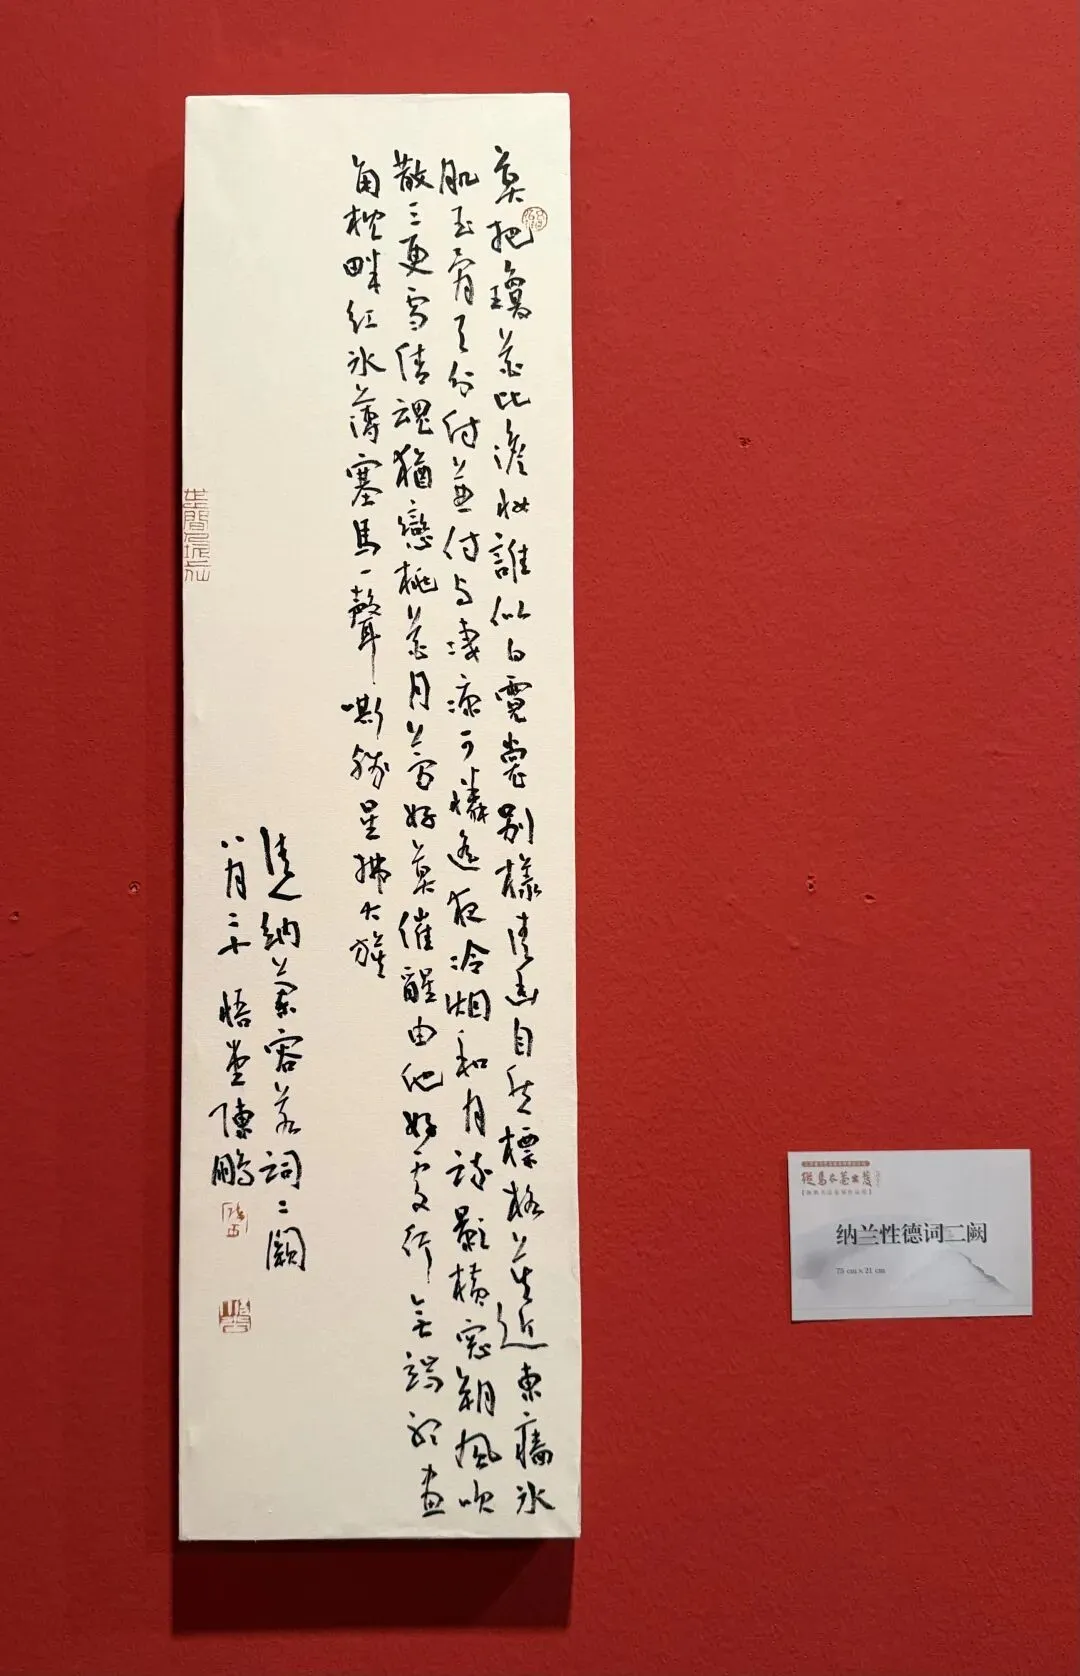 莫把瓊花比澹妝誰似白霓裳別樣清幽自然標格莫近東牆冰
肌玉骨天分付兼付与淒涼可憐遙夜冷烟和月疏影橫窓朔風吹
散三更雪倩魂猶戀桃花月夢好莫催醒由他好處行無端聽畫
角枕畔紅冰薄塞馬一聲嘶殘星拂大旗
清人納蘭容若詞二闋
八月二十 悟堂陳鵬
纳兰性德词二阕
75 cm×21 cm